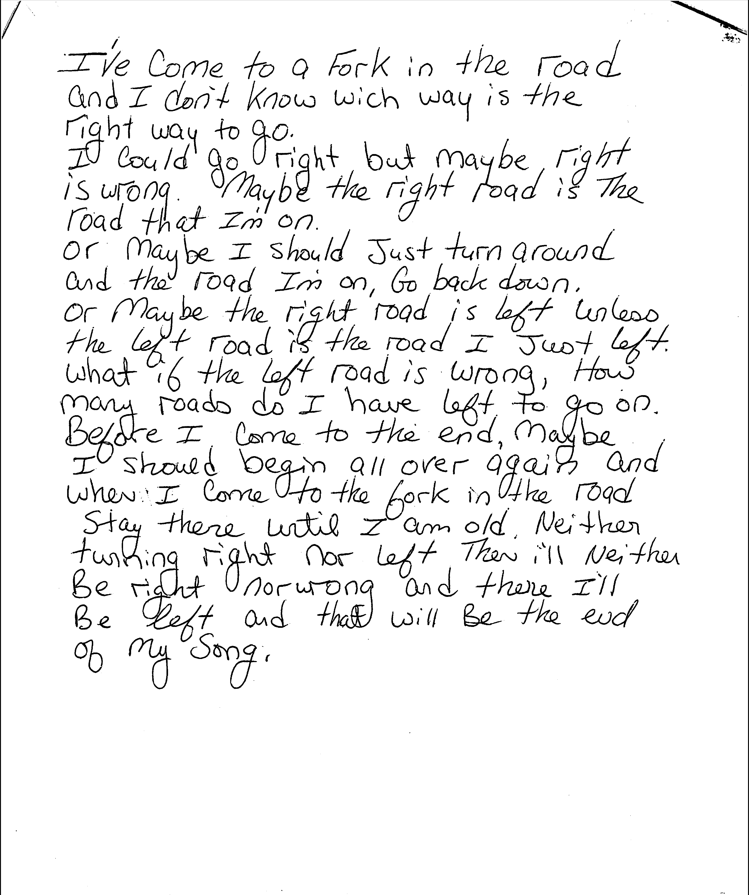 I've Come to a Fork in the road
and I don't know wich way is the
right way to go.
I Could go right but maybe right
is wrong. Maybe the right road is The
road that I'm on.
or Maybe I should Just turn around
and the road I'm on, Go back down.
or Maybe the right road is left unless
the left road is the road I Just left.
What if the left road is wrong, How
many roads do I have left to go on.
Before I Come to the end, Maybe
I should begin all over again and
when I Come to the fork in the road
Stay there until I am old. Neither
turning right Nor left Then i'll Neither
Be right nor wrong and there I'll
Be left and that will Be the end
of My Song.